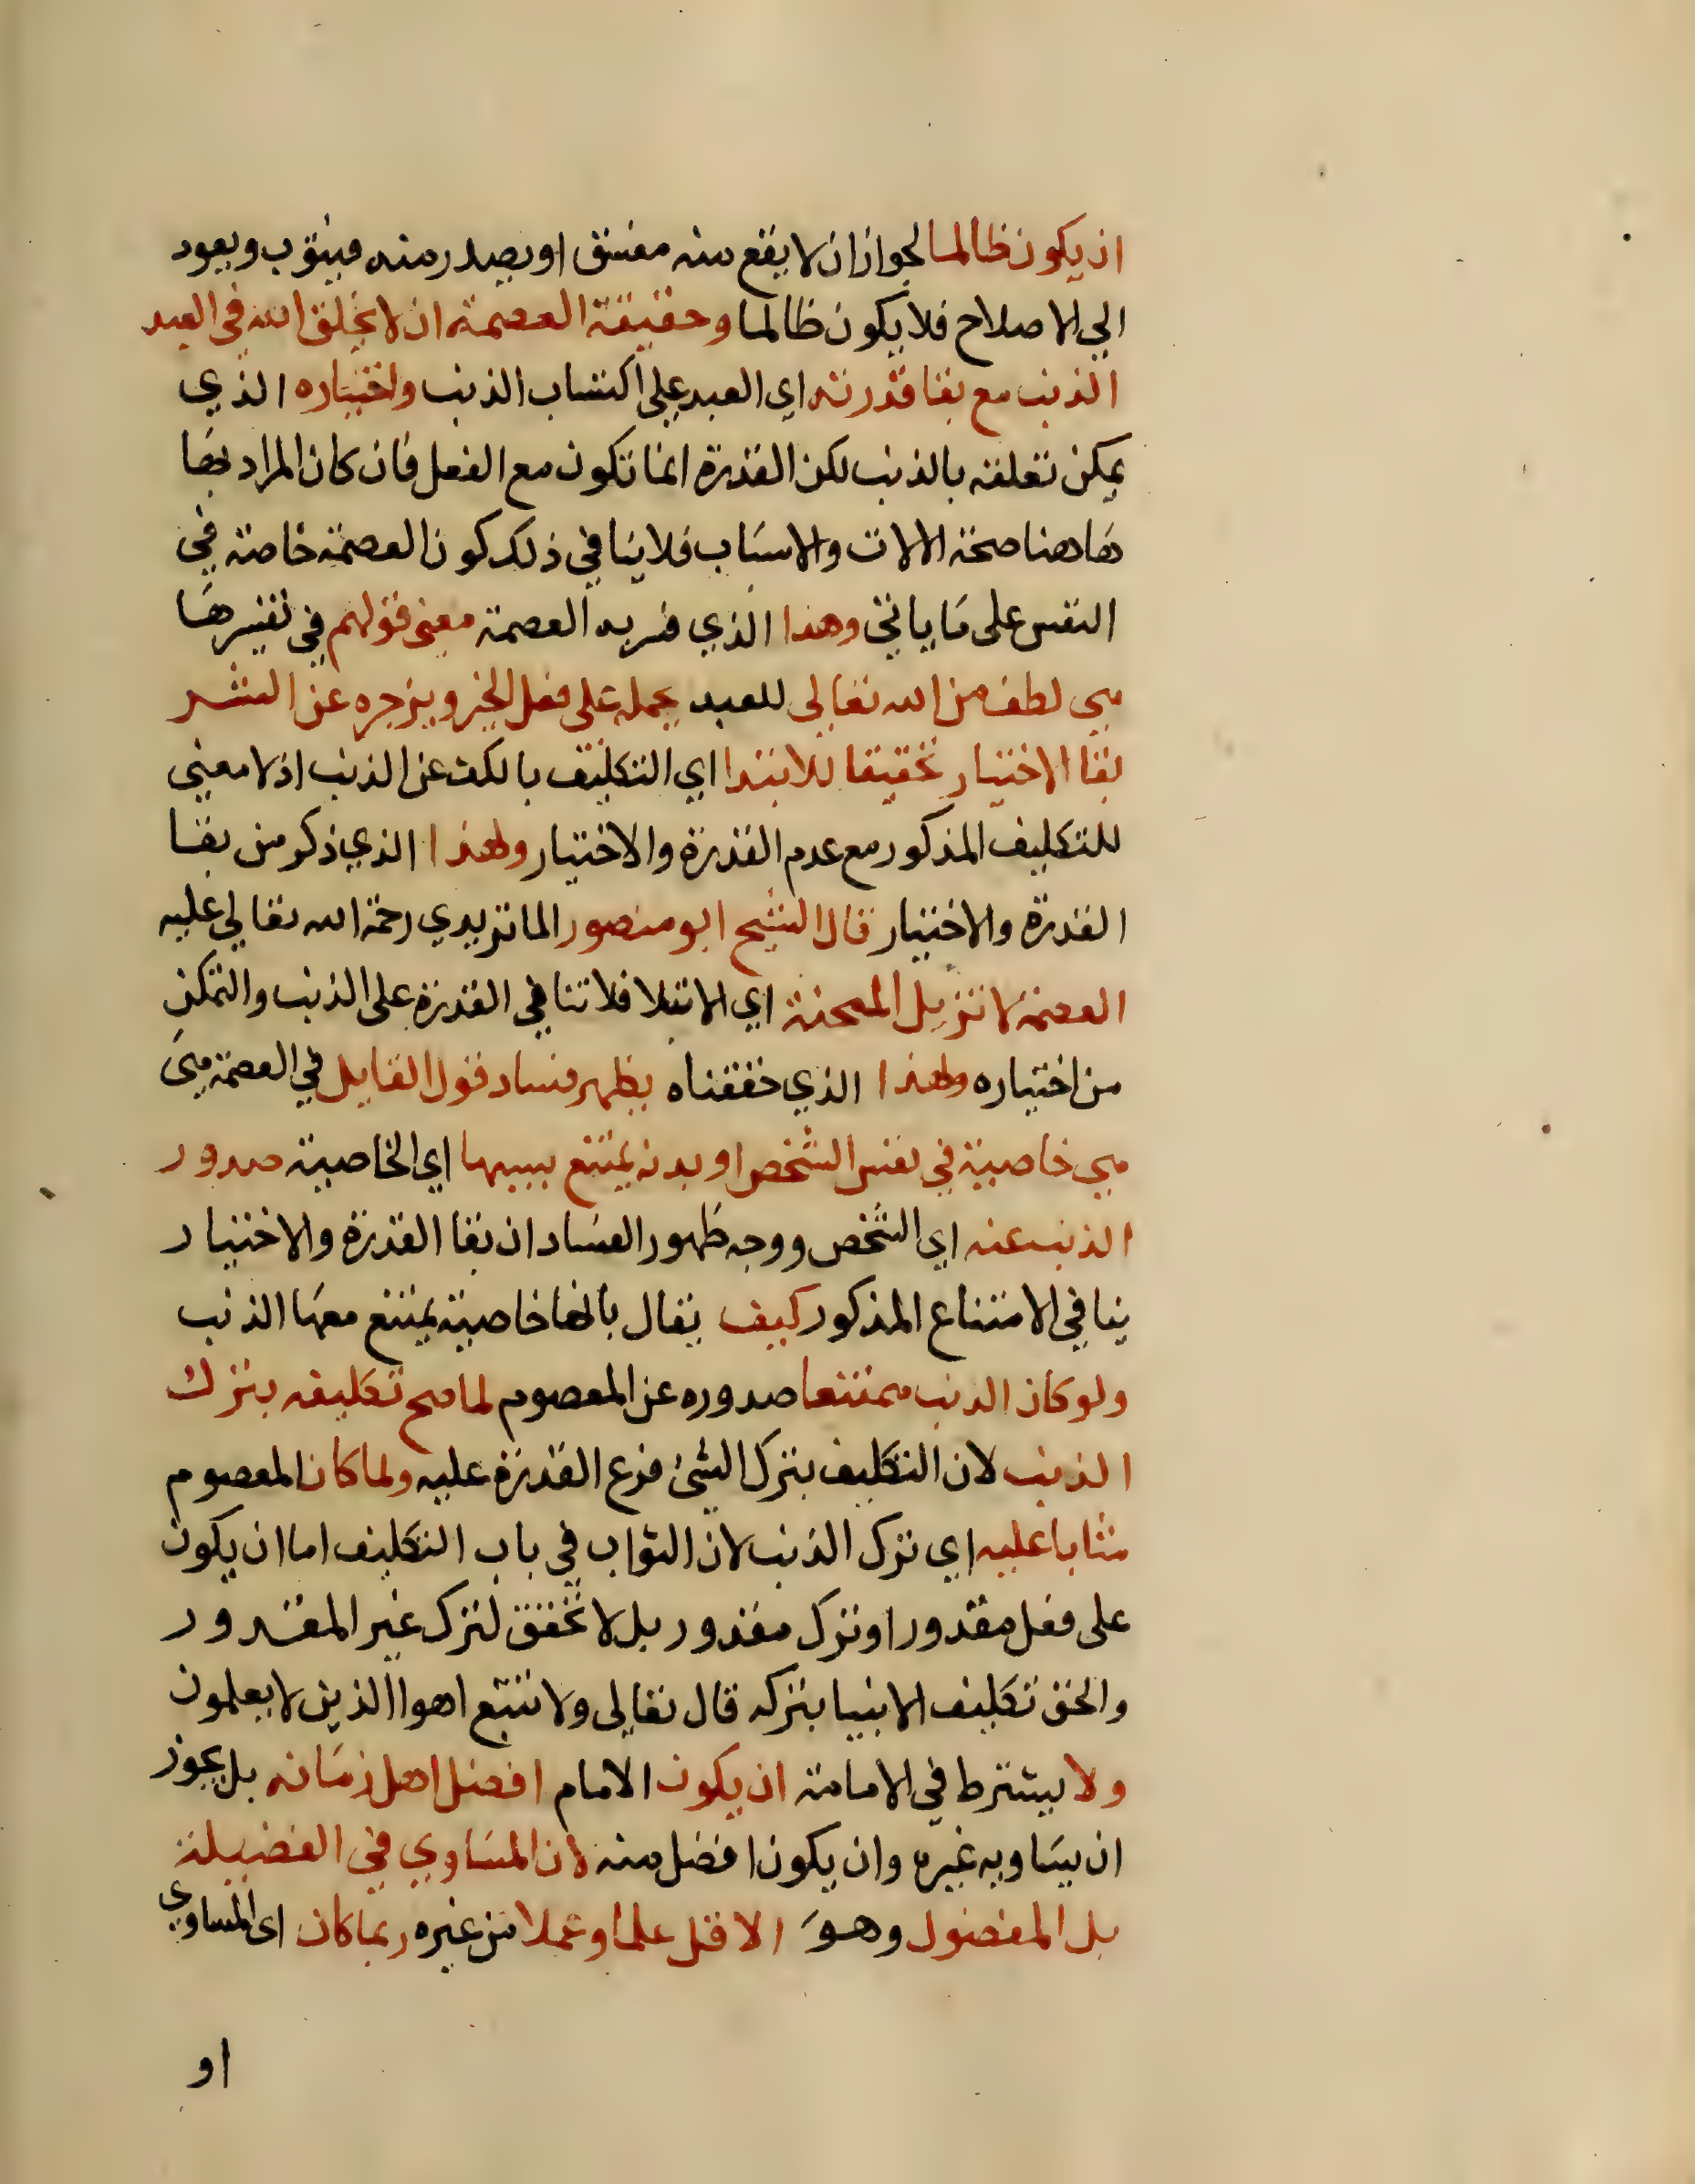 ان يكون ظالما لجواز ان لا يقع منه مفسق او يصدر منه فيتوب ويعود
الي الاصلاح فلا يكون ظالما وحقيقة العصمة ان لا يخلق الله في العبد
الذنب مع بقا قدرته اي العبد علي اكتساب الذنب واختياره الذي
يمكن تعلقه بالذنب لكن القدرة انما تكون مع الفعل فان كان المراد بها
هاهنا صحة الالات والاسباب فلا ينافي ذلك كون العصمة خاصة في
النفس على ما ياتي وهذا الذي فسر به العصمة معنى قولهم في تفسيرها
هي لطف من الله تعالى للعبد يحمله على فعل الخير ويزجره عن الشر
بقا الاختيار تحقيقا للابتدا اي التكليف بالكف عن الذنب اذ لا معنى
للتكليف المذكور مع عدم القدرة والاختيار ولهذا الذي ذكر من بقا
القدرة والاختيار قال الشيخ ابو منصور الماتريدي رحمة الله تعالى عليه
العصمة لا تزيل المحنة اي الابتلا فلا تنافي القدرة على الذنب والتمكن
من اختياره ولهذا الذي حققناه يظهر فساد قول القايل في العصمة هي
هي خاصية في نفس الشخص او بدنه يمتنع بسببها اي الخاصية صدور
الذنب عنه اي الشخص ووجه ظهور الفساد ان بقا القدرة والاختيار
ينافي الامتناع المذكور كيف يقال بانها خاصية يمتنع معها الذنب
ولو كان الذنب ممتنعا صدوره عن المعصوم لما صح تكليفه بترك
الذنب لان التكليف بترك الشئ فرع القدرة عليه ولما كان المعصوم
مثابا عليه اي ترك الذنب لان الثواب في باب التكليف اما ان يكون
على فعل مقدور او ترك مقدور بل لا تحقق لترك غير المقدور
والحق تكليف الانبيا بتركه قال تعالى ولا تتبع اهوا الذين لا يعلمون
ولا يشترط في الامامة ان يكون الامام افضل اهل زمانه بل يجوز
ان يساويه غيره وان يكون افضل منه لان المساوي في الفضيلة
بل المفضول وهو الاقل علما وعملا من غيره ربما كان اى المساوي
او